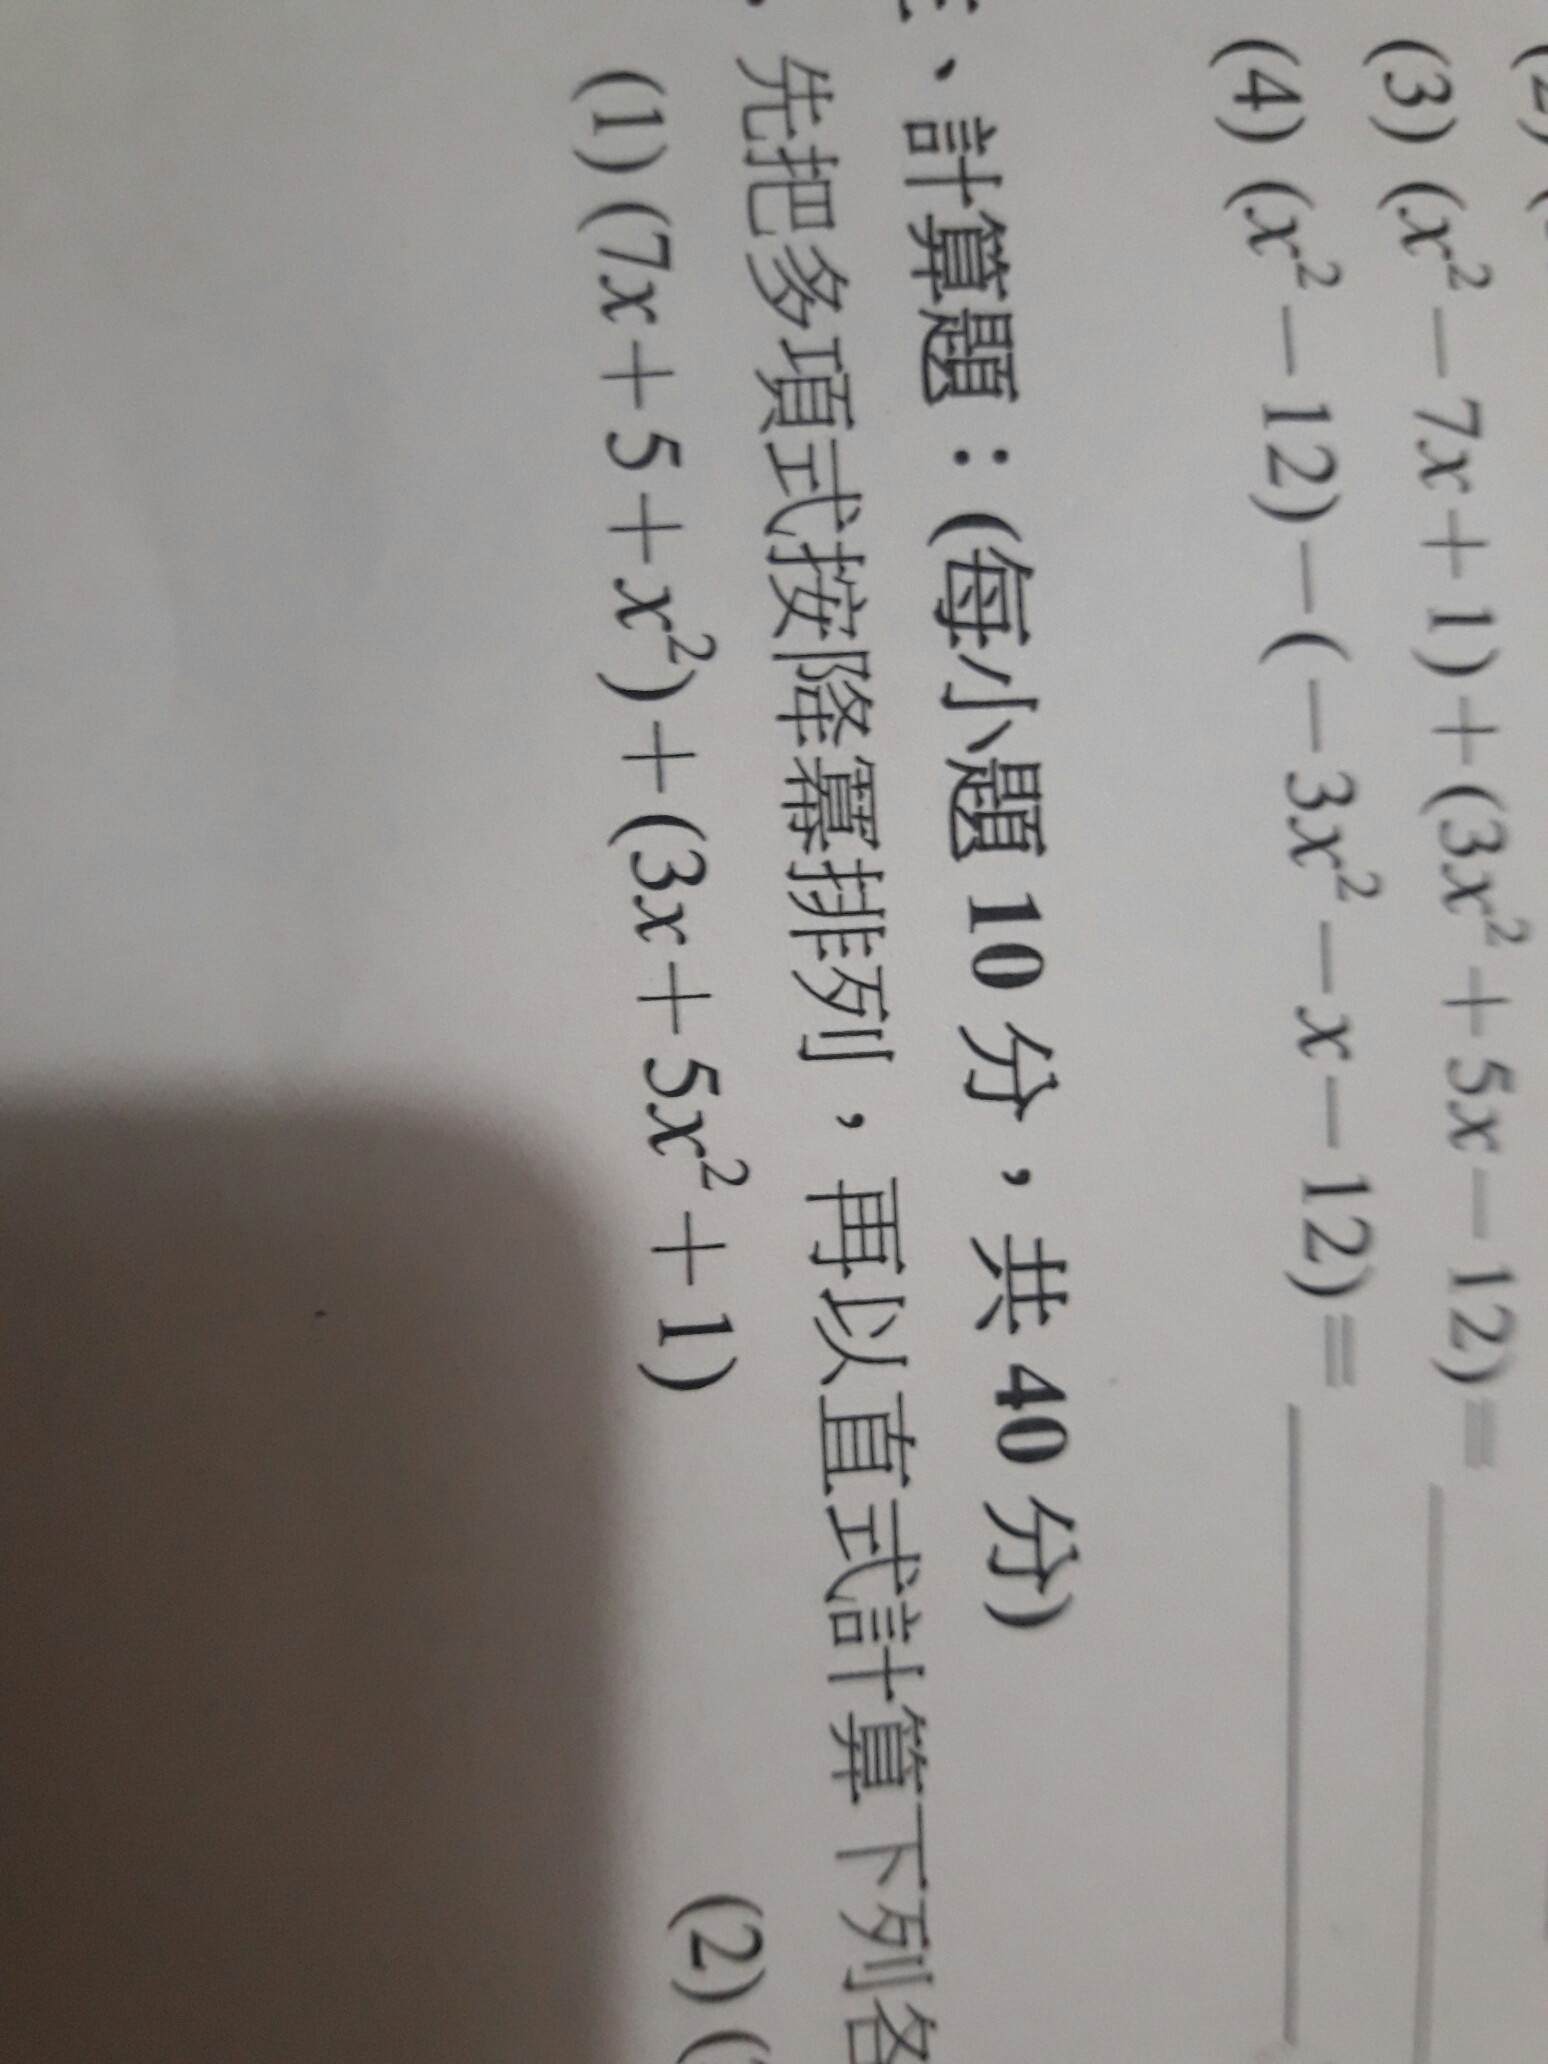 (3) (x² − 7x + 1) + (3x² + 5x − 12) =
(4) (x² − 12) − ( − 3x² − x − 12) =
、計算題：(每小題 10 分，共 40 分)
先把多項式按降冪排列，再以直式計算下列各
(1) (7x + 5 + x²) + (3x + 5x² + 1)
(2) (